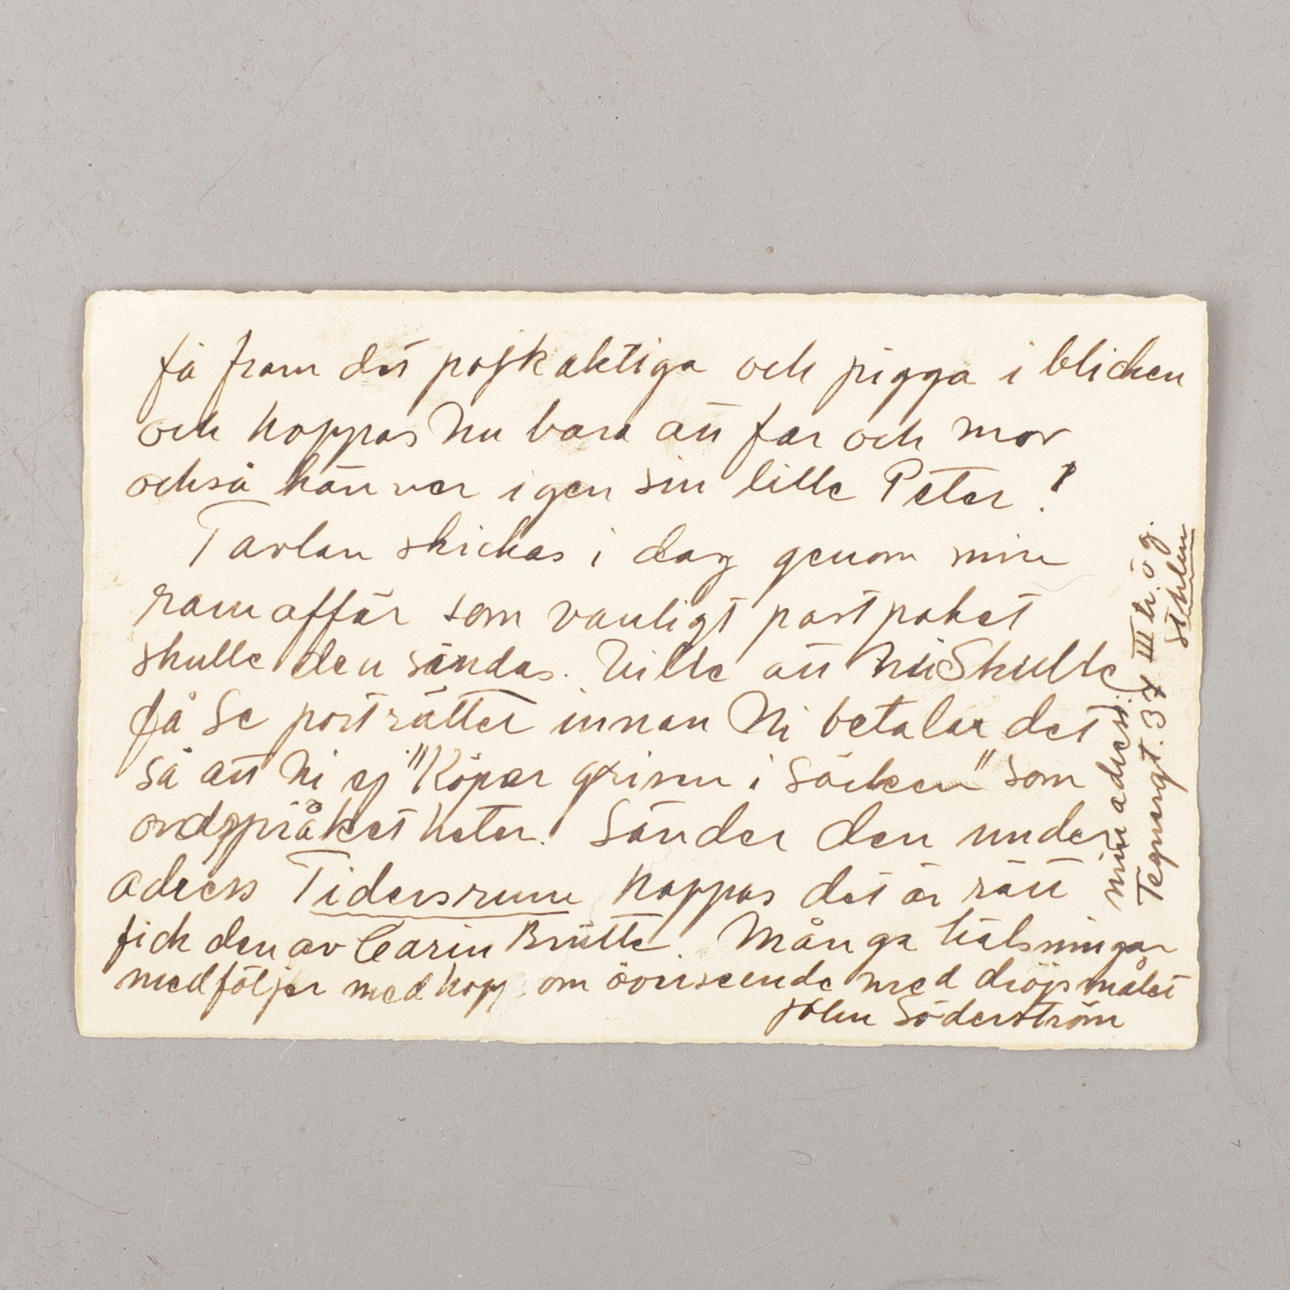 få fram det pojkaktiga och pigga i blicken
och hoppas nu bara att far och mor
också känner igen sin lille Peter!
Tavlan skickas i dag genom min
ramaffär som vanligt postpaket
skulle den sändas. Ville att ni skulle
få se porträttet innan Ni betalar det
så att Ni ej "Köper grisen i säcken" som
ordspråket heter! Sänder den under
adress Tidersrum hoppas det är rätt
fick den av Carin Brütte. Många hälsningar
medföljer med hopp om överseende med dröjsmålet
John Söderström
min adress:
Tegnergt. 37 III h. ö g.
Sthlm